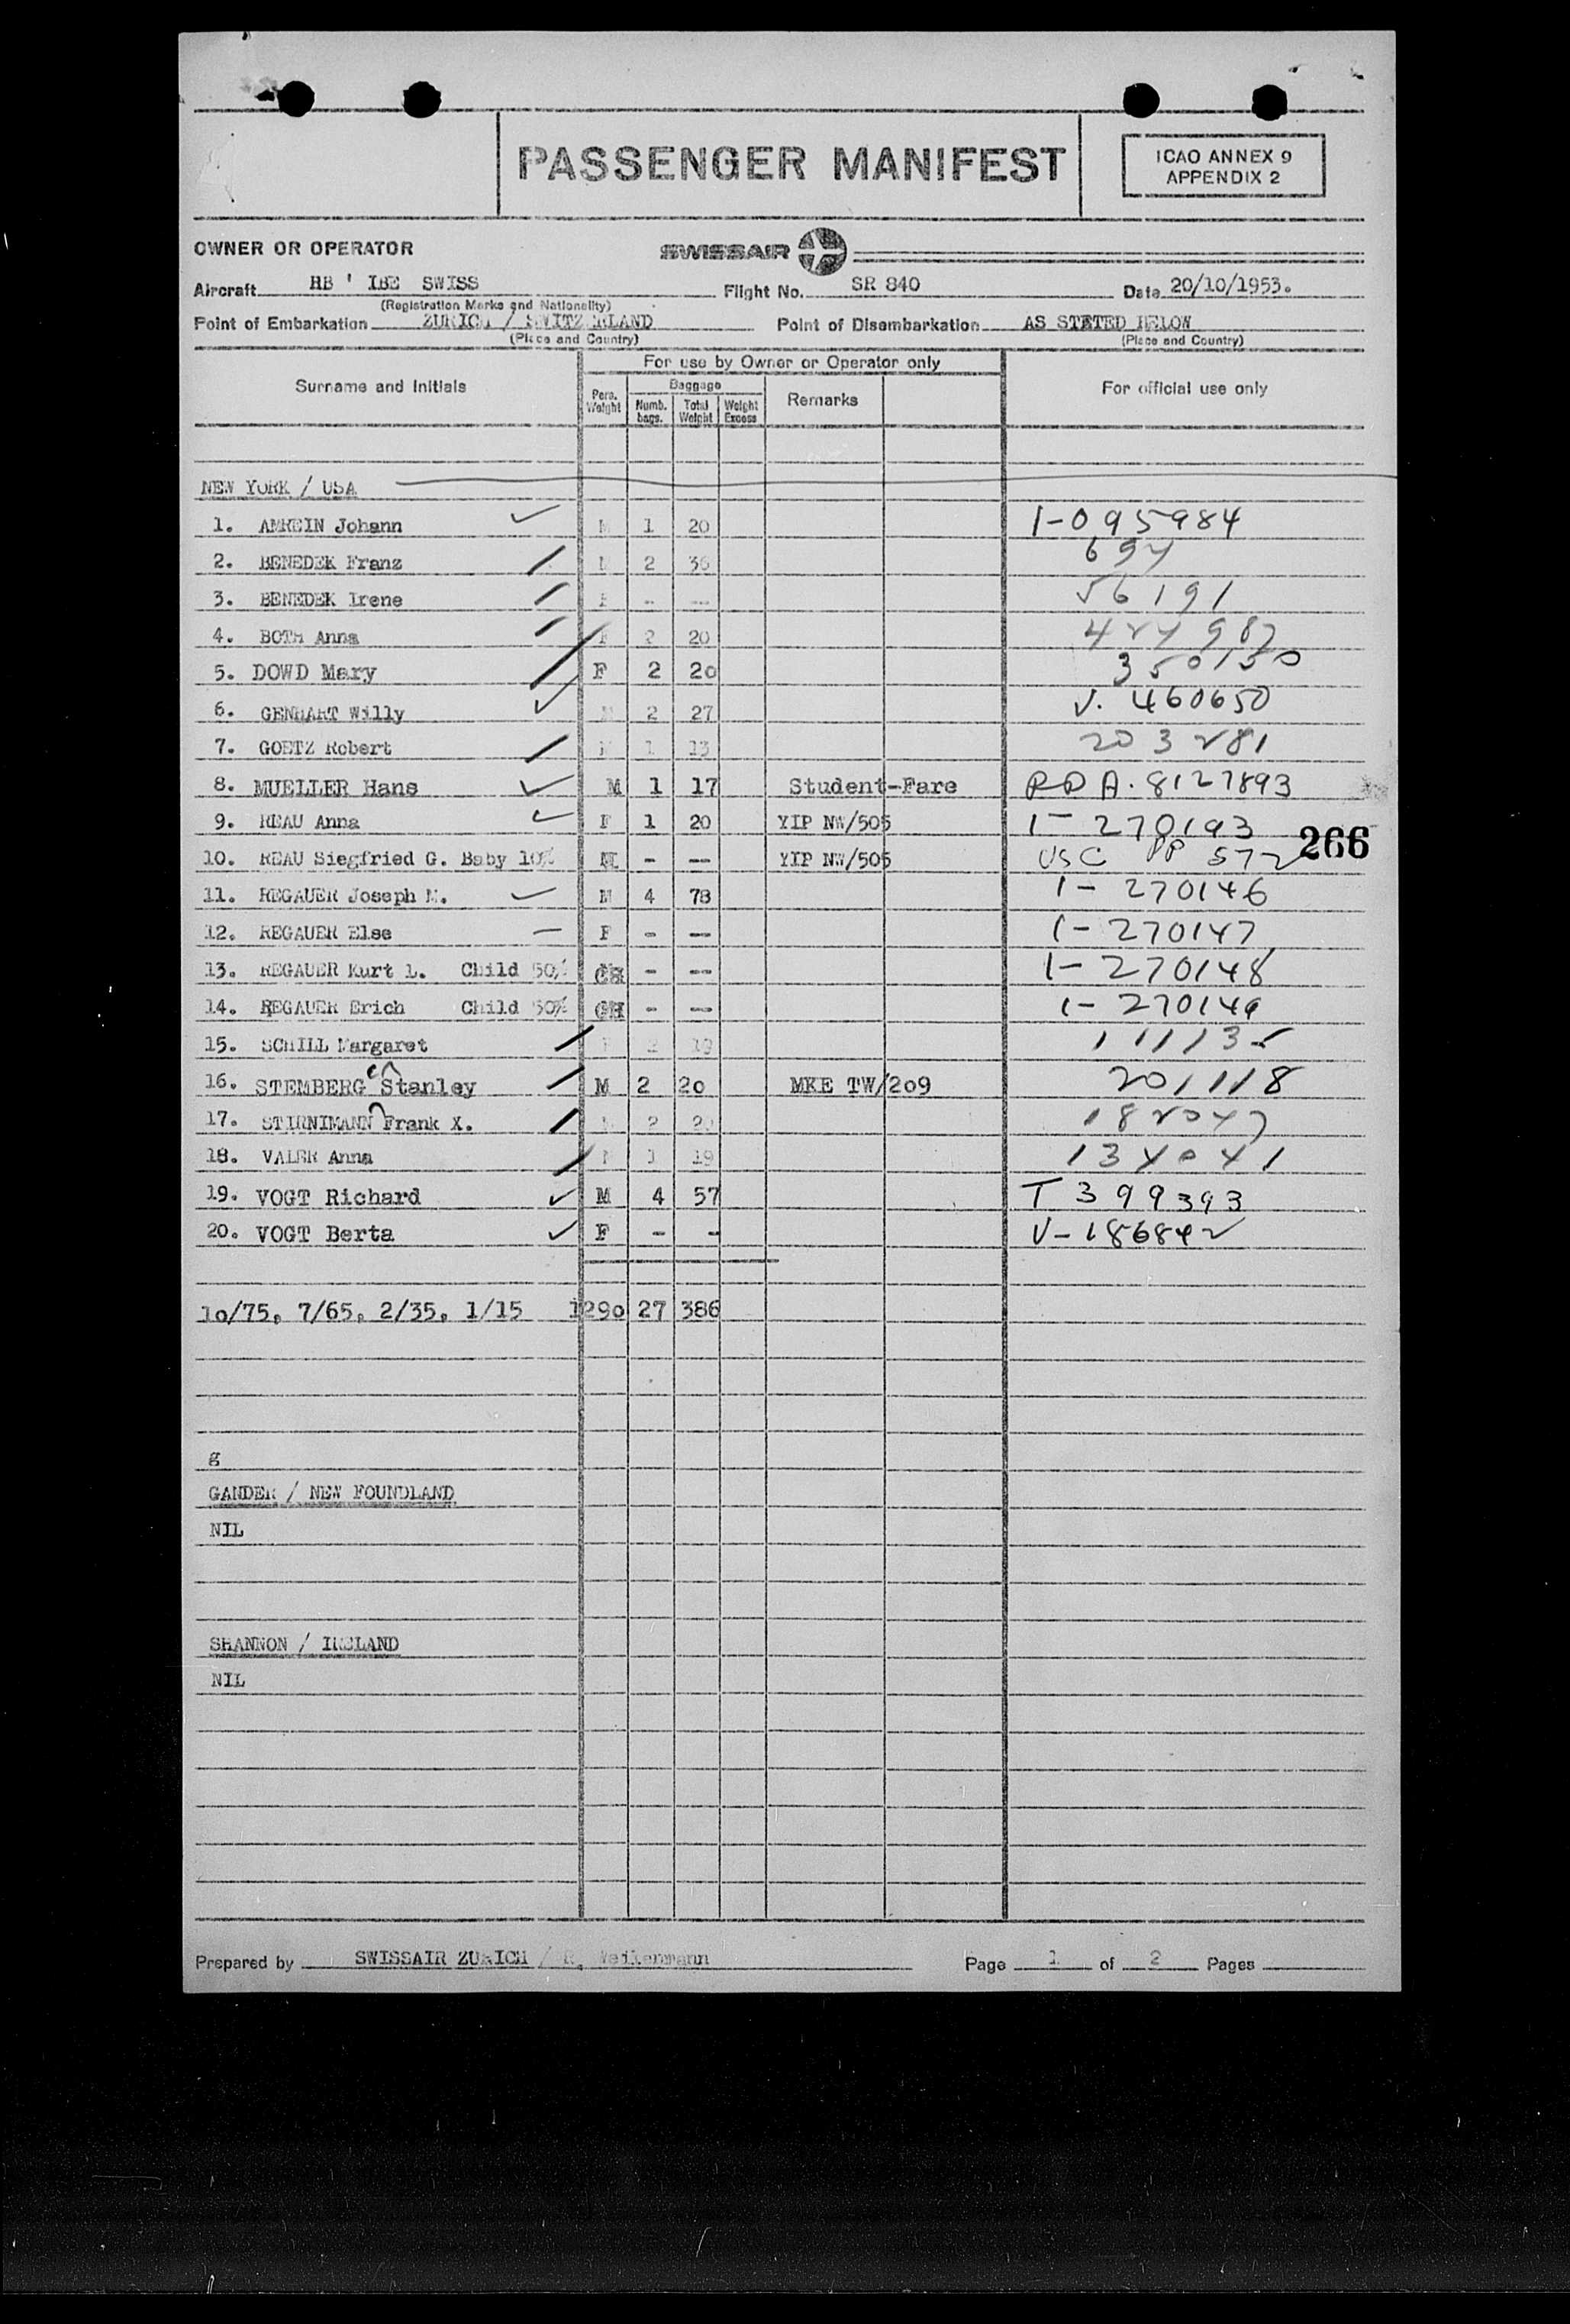 PASSENGER MANIFEST
ICAO ANNEX 9
APPENDIX 2
OWNER OR OPERATOR
SWISSAIR
Aircraft HB ' IBE SWISS Flight No. SR 840 Date 20/10/1953.
(Registration Marks and Nationality)
Point of Embarkation ZURICH / SWITZERLAND Point of Disembarkation AS STETED BELOW
(Place and Country) (Place and Country)
For use by Owner or Operator only
Surname and Initials Pers. Weight Baggage Numb. bags. Total Weight Weight Excess Remarks For official use only
NEW YORK / USA
1. AMREIN Johann M 1 20 1-095984
2. BENEDEK Franz M 2 36
3. BENEDEK Irene F - -- 56191
4. BOTH Anna F 2 20
5. DOWD Mary F 2 20 350150
6. GENHART Willy M 2 27 V. 460650
7. GOETZ Robert M 1 13 203281
8. MUELLER Hans M 1 17 Student-Fare 8127893
9. REAU Anna F 1 20 YIP NW/505 1-270193
266
10. REAU Siegfried G. Baby 10% M - -- YIP NW/505 USC PP 572
11. REGAUER Joseph M. M 4 78 1-270146
12. REGAUER Else F - -- 1-270147
13. REGAUER Kurt L. Child 50% CH - -- 1-270148
14. REGAUER Erich Child 50% CH - -- 1-270149
15. SCHILL Margaret F 2 19
16. STEMBERG Stanley M 2 20 MKE TW/209 201118
17. STIRNIMANN Frank X. M 2 20
18. VALER Anna F 1 19
19. VOGT Richard M 4 57 T 399393
20. VOGT Berta F - - V-186842
10/75, 7/65, 2/35, 1/15 1290 27 386
g
GANDER / NEW FOUNDLAND
NIL
SHANNON / IRELAND
NIL
Prepared by SWISSAIR ZURICH / R. Weilenmann Page 1 of 2 Pages